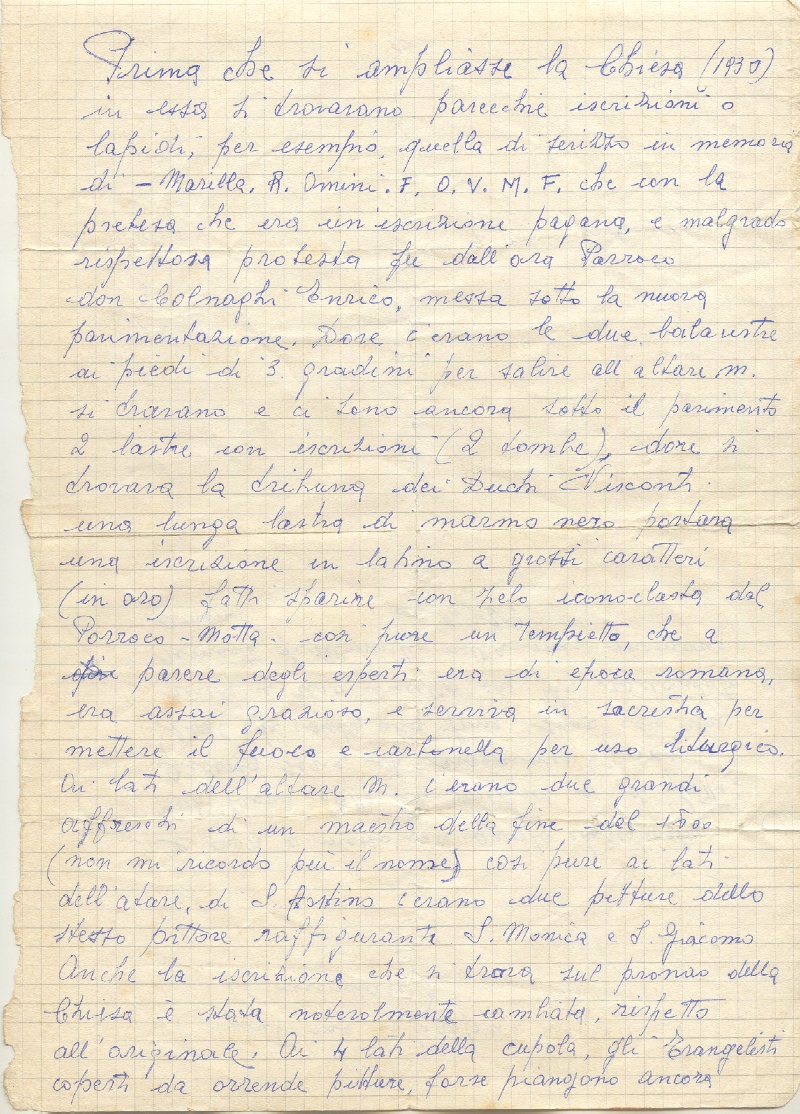 Prima che si ampliasse la Chiesa (1930)
in essa si trovavano parecchie iscrizioni o
lapidi, per esempio, quella di scritto in memoria
di - Marilla. R. Omini. F. O. V. M. F. che con la
pretesa che era un'iscrizione pagana, e malgrado
rispettosa protesta fu dall'ora Parroco
don Colnaghi Enrico, messa sotto la nuova
pavimentazione. Dove c'erano le due balaustre
ai piedi di 3 gradini per salire all altare m.
si travano e ci sono ancora sotto il pavimento
2 lastre con iscrizioni (2 tombe), dove si
trovava la tribuna dei Duchi Visconti.
una lunga lastra di marmo nero portava
una iscrizione in latino a grossi caratteri
(in oro) fatti sparire con zelo iconoclasta dal
Parroco - Motta - così pure un Tempietto, che a
parere degli esperti era di epoca romana,
era assai grazioso, e serviva in sacrestia per
mettere il fuoco e carbonella per uso liturgico.
Ai lati dell'altare M. c'erano due grandi
affreschi di un maestro della fine del
(non mi ricordo più il nome) così pure ai lati
dell'atare, di S. Agstino c'erano due pitture dello
stesso pittore raffigurante S. Monica e S. Giacomo
Anche la iscrizione che si trova sul pronao della
Chiesa è stata notevolmente cambiata, rispetto
all'originale. Ai 4 lati della cupola, gli Evangelisti
coperti da orrende pitture, forse piangono ancora